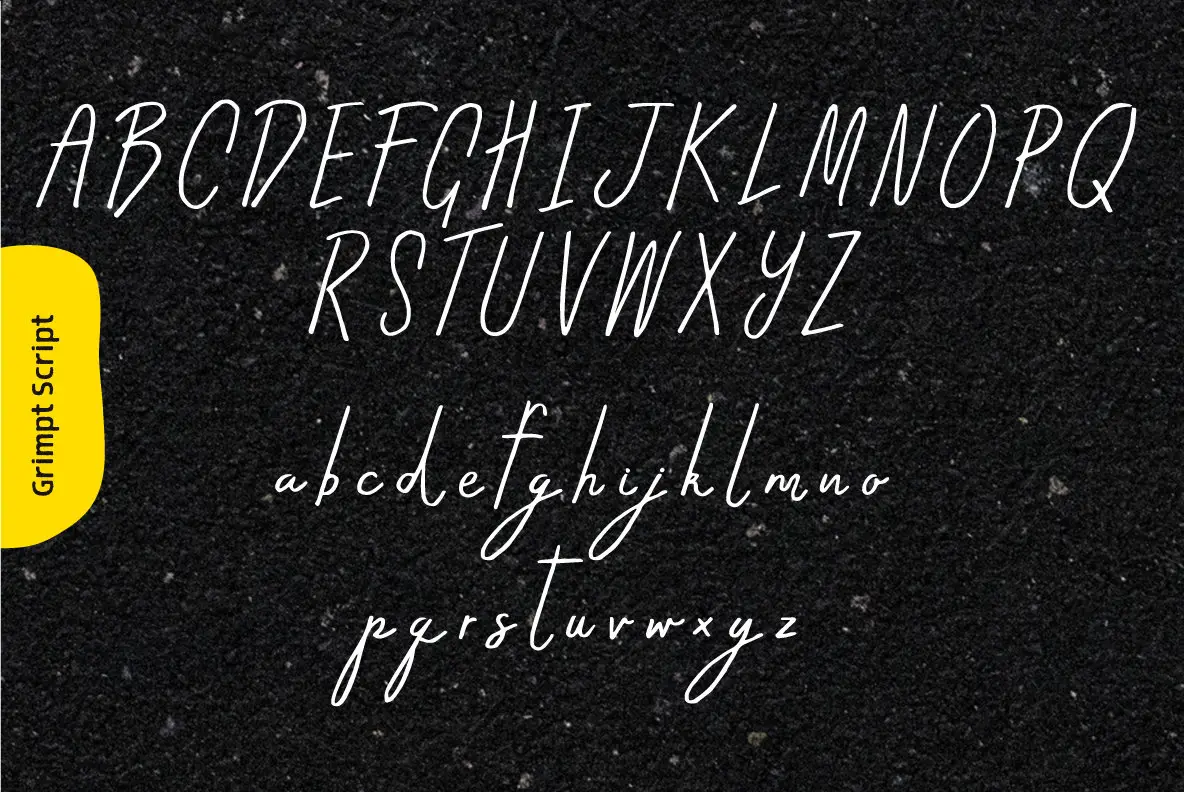 ABCDEFGHIJKLMNOPQ
RSTUVWXYZ
Grimpt Script
abcdefghijklmno
pqrstuvwxyz